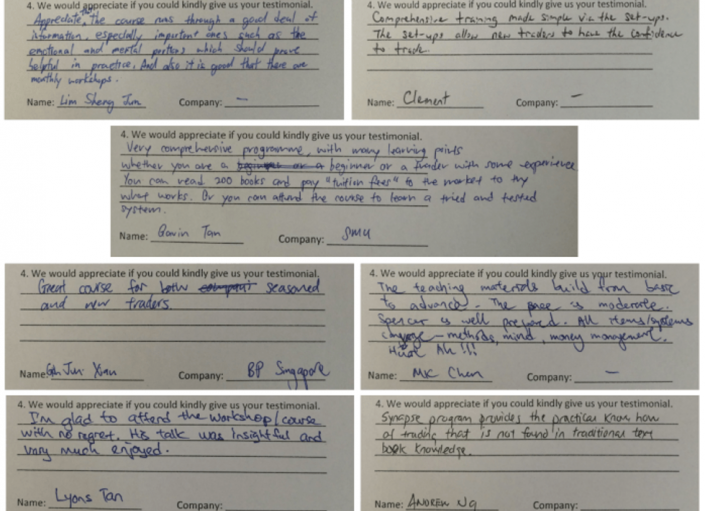 4. We would appreciate if you could kindly give us your testimonial.
Appreciate the course runs through a good deal of
information, especially important ones such as the
emotional and mental portions which should prove
helpful in practice. And also it is good that there are
monthly workshops.
Name: Lim Sheng Jun Company: —
4. We would appreciate if you could kindly give us your testimonial.
Comprehensive training made simple via the set-ups.
The set-ups allow new traders to have the confidence
to trade.
Name: Clement Company: —
4. We would appreciate if you could kindly give us your testimonial.
Very comprehensive programme, with many learning points
whether you are a beginner or a trader with some experience
You can read 200 books and pay "tuition fees" to the market to try
what works. Or you can attend the course to learn a tried and tested
system.
Name: Gavin Tan Company: SMU
4. We would appreciate if you could kindly give us your testimonial.
Great course for both seasoned
and new traders.
Name: Jun Xian Company: BP Singapore
4. We would appreciate if you could kindly give us your testimonial.
The teaching materials build from base
to advance. The pace is moderate.
Spencer is well prepared. All items/systems
- methods, mind, money management.
Huat Ah!!!
Name: MK Chen Company: —
4. We would appreciate if you could kindly give us your testimonial.
I'm glad to attend the workshop/course
with no regret. His talk was insightful and
very much enjoyed.
Name: Lyons Tan Company:
4. We would appreciate if you could kindly give us your testimonial.
Synapse program provides the practical know how
of trading that is not found in traditional
book knowledge.
Name: ANDREW NG Company: